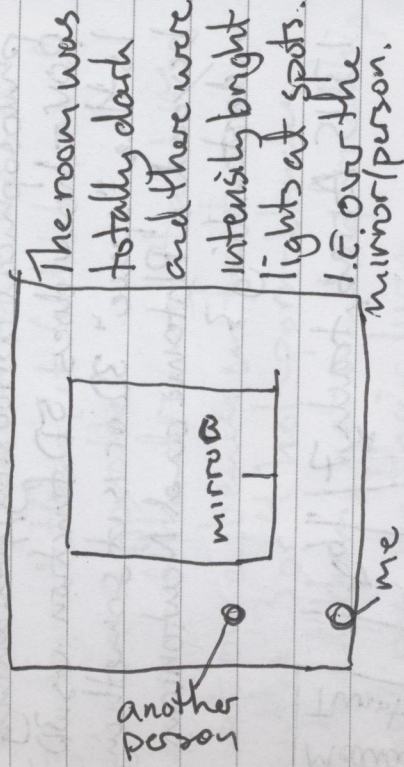 The room was
totally dark
and there were
intensily bright
lights at spots.
I.E over the
mirror/person.
mirror
another
person
me